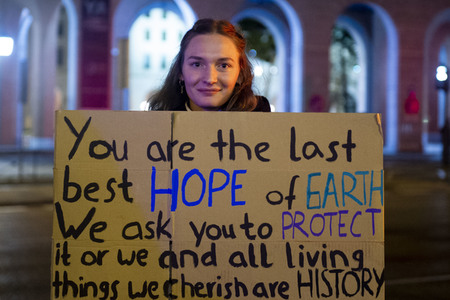 You are the last
best HOPE of EARTH
We ask you to PROTECT
it or we and all living
things we cherish are HISTORY